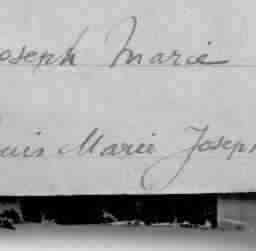 oseph Marie
ouis Marie Joseph